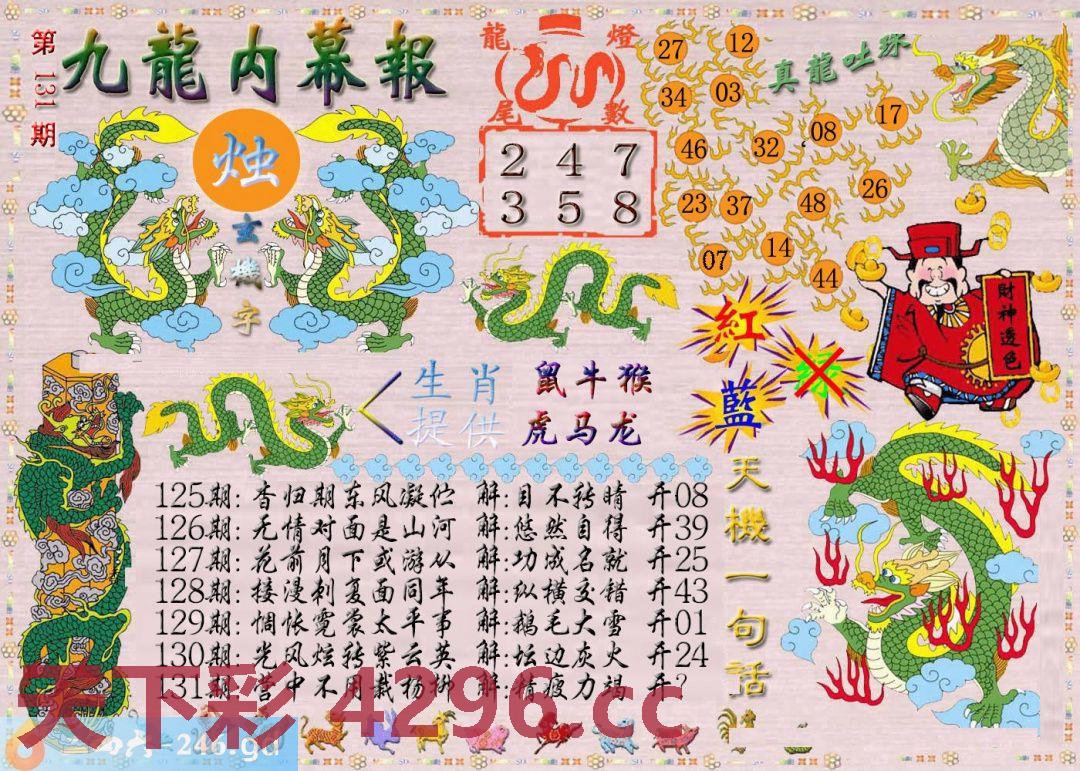 第131期
九龍内幕報
龍燈
尾數
27 12
34 03
真龍吐珠
46 32 08 17
23 37 48 26
07 14 44
烛
玄機字
2 4 7
3 5 8
紅
藍
绿
財神透色
生肖 鼠牛猴
提供 虎马龙
天機一句話
125期:香归期东风凝伫 解:目不转睛 开08
126期:无情对面是山河 解:悠然自得 开39
127期:花前月下或游从 解:功成名就 开25
128期:接漫刺复面同年 解:纵横交错 开43
129期:惆怅霓裳太平事 解:鹅毛大雪 开01
130期:光风炫转紫云英 解:坛边灰火 开24
131期:营中不用栽杨柳 解:精疲力竭 开?
天下彩 4296.cc
246.gd